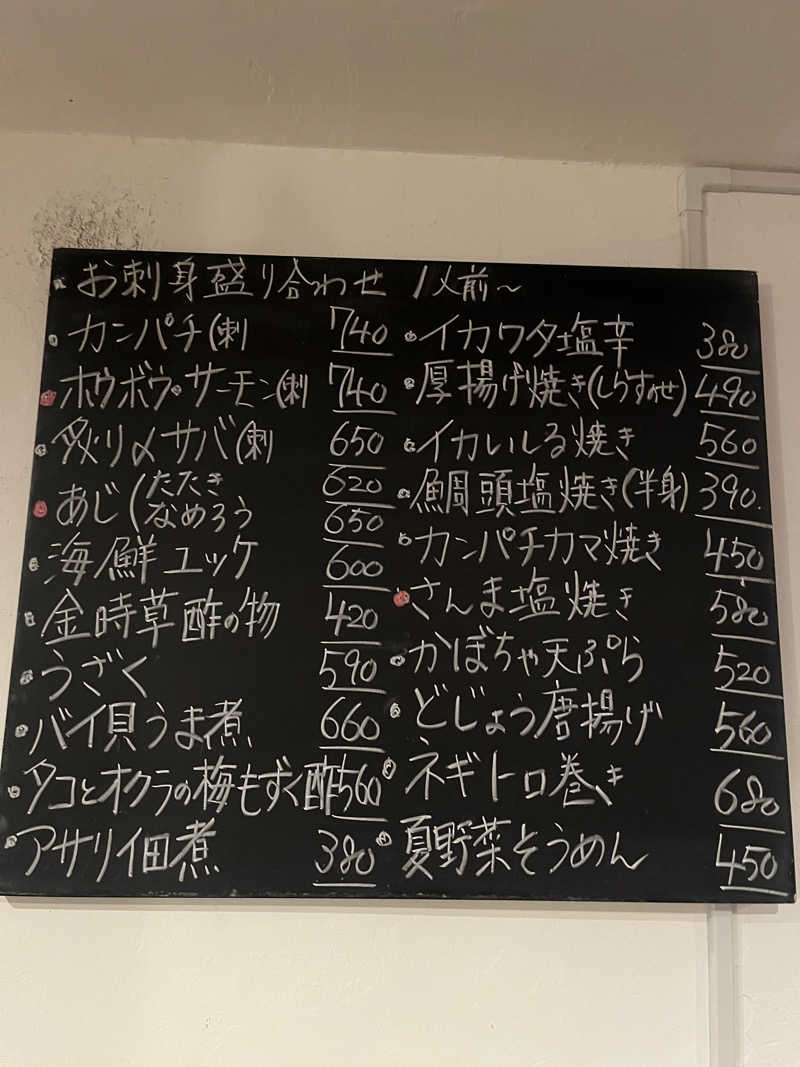 お刺身盛り合わせ 1人前〜
カンパチ(刺 740
ホウボウ・サーモン(刺 740
炙り〆サバ(刺 650
あじ(たたき 620
なめろう 650
海鮮ユッケ 600
金時草酢の物 420
うざく 590
バイ貝うま煮 660
タコとオクラの梅もずく酢 560
アサリ佃煮 380
イカワタ塩辛 380
厚揚げ焼き(しらすのせ) 490
イカいしる焼き 560
鯛頭塩焼き(半身) 390.
カンパチカマ焼き 450
さんま塩焼き 580
かぼちゃ天ぷら 520
どじょう唐揚げ 560
ネギトロ巻き 680
夏野菜そうめん 450